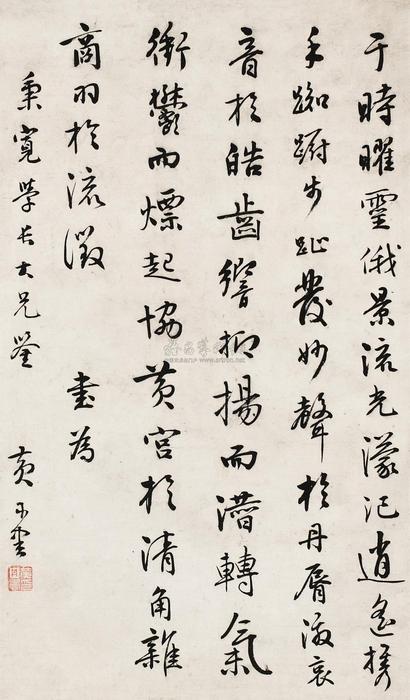 于時曜靈俄景流光濛汜逍遙携
手踟蹰步趾發妙聲於丹脣激哀
音於皓齒響抑揚而潛轉氣
衝鬱而熛起協黃宮於清角雜
商羽於流徵 書為
秉寬學長大兄鑒 黃